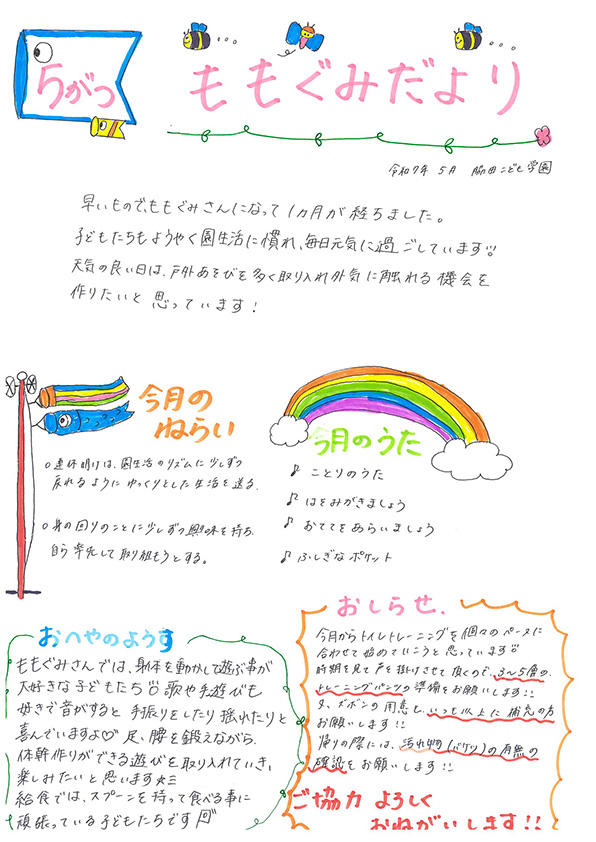 5がつ
ももぐみだより
令和7年 5月 脇田こども学園
早いもので、ももぐみさんになって1カ月が経ちました。
子どもたちもようやく園生活に慣れ、毎日元気に過ごしています!!
天気の良い日は、戸外あそびを多く取り入れ外気に触れる機会を
作りたいと思っています!
今月の
ねらい
○連休明けは、園生活のリズムに少しずつ
戻れるようにゆっくりとした生活を送る。
○身の回りのことに少しずつ興味を持ち、
自ら率先して取り組もうとする。
今月のうた
♪ ことりのうた
♪ はをみがきましょう
♪ おててをあらいましょう
♪ ふしぎなポケット
おへやのようす
ももぐみさんでは、身体を動かして遊ぶ事が
大好きな子どもたち!! 歌や手遊びも
好きで音がすると手振りをしたり揺れたりと
喜んでいますよ♡ 足、腰を鍛えながら、
体幹作りができる遊びを取り入れていき、
楽しみたいと思います☆
給食では、スプーンを持って食べる事に
頑張っている子どもたちです
おしらせ.
今月からトイレトレーニングを個々のペースに
合わせて始めていこうと思っています!!
時期を見て声を掛けさせて頂くので、3~5層の
トレーニングパンツの準備をお願いします!!
又、ズボンの用意もいつも以上に補充の方
お願いします!!
帰りの際には、汚れ物(バケツ)の有無の
確認をお願いします!!
ご協力 よろしく
おねがいします!!